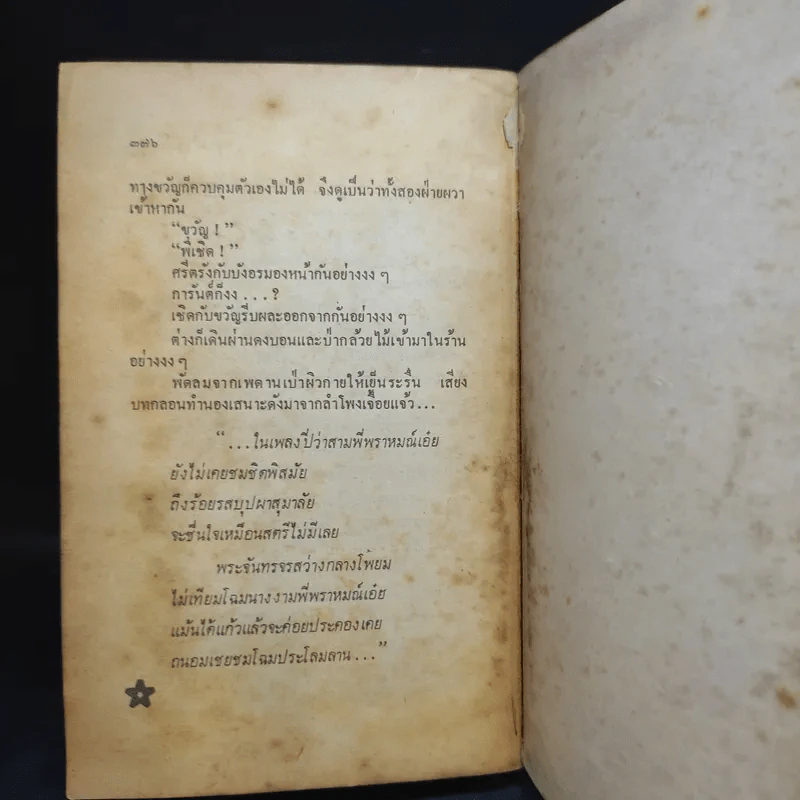 ๓๗๖
ทางขวัญก็ควบคุมตัวเองไม่ได้ จึงดูเป็นว่าทั้งสองฝ่ายผวา
เข้าหากัน
“ขวัญ !”
“พี่เชิด !”
ศรีตรังกับบังอรมองหน้ากันอย่างงง ๆ
การันต์ก็งง . . . ?
เชิดกับขวัญรีบผละออกจากกันอย่างงง ๆ
ต่างก็เดินผ่านดงบอนและป่ากล้วยไม้เข้ามาในร้าน
อย่างงง ๆ
พัดลมจากเพดานเป่าผิวกายให้เย็นระรื่น เสียง
บทกลอนทำนองเสนาะดังมาจากลำโพงเจื้อยแจ้ว . . .
“ . . . ในเพลงปี่ว่าสามพี่พราหมณ์เอ๋ย
ยังไม่เคยชมชิดพิสมัย
ถึงร้อยรสบุปผาสุมาลัย
จะชื่นใจเหมือนสตรีไม่มีเลย
พระจันทรจรสว่างกลางโพยม
ไม่เทียมโฉมนางงามพี่พราหมณ์เอ๋ย
แม้นได้แก้วแล้วจะค่อยประคองเคย
ถนอมเชยชมโฉมประโลมลาน . . . ”